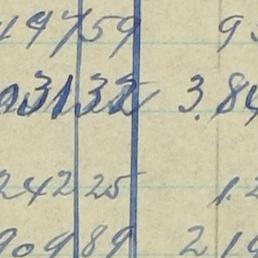 19759 93
03132 3.84
24225 1.2
90989 219